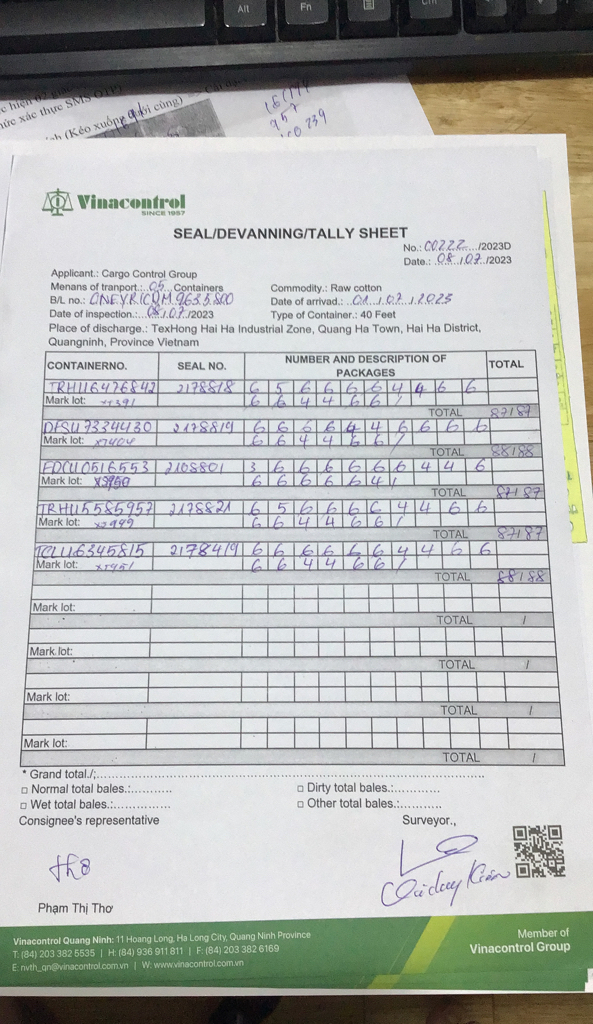 Alt
Fn
Ctrl
thức xác thực SMS OTP)
(Kéo xuống dưới cùng)
957
239
Vinacontrol
SINCE 1957
SEAL/DEVANNING/TALLY SHEET
No.: 00222.../2023D
Date.: 08./.07./2023
Applicant.: Cargo Control Group
Menans of tranport.: 05 Containers
Commodity.: Raw cotton
B/L no.: ONEYRICDM9635800
Date of arrivad.: 01./.07./.2023
Date of inspection.: 08/07/2023
Type of Container.: 40 Feet
Place of discharge.: TexHong Hai Ha Industrial Zone, Quang Ha Town, Hai Ha District,
Quangninh, Province Vietnam
CONTAINERNO. SEAL NO. NUMBER AND DESCRIPTION OF PACKAGES TOTAL
TRHU6476842 2178818 6 5 6 6 6 6 4 4 6 6
Mark lot: 6 6 4 4 6 6 /
TOTAL 87/87
DFSU7334430 2178819 6 6 6 6 4 4 6 6 6 6
Mark lot: 6 6 4 4 6 6 /
TOTAL 88/88
2108801 3 6 6 6 6 6 6 4 4 6
Mark lot: 6 6 6 6 6 4 /
TOTAL 87/87
TRHU5585957 2178821 6 5 6 6 6 6 4 4 6 6
Mark lot: 6 6 4 4 6 6 /
TOTAL 87/87
TCLU6345815 2178419 6 6 6 6 6 6 4 4 6 6
Mark lot: 6 6 4 4 6 6 /
TOTAL 88/88
Mark lot:
TOTAL /
Mark lot:
TOTAL /
Mark lot:
TOTAL /
Mark lot:
TOTAL /
* Grand total./:
□ Normal total bales.:
□ Dirty total bales.:
□ Wet total bales.:
□ Other total bales.:
Consignee's representative
Surveyor.,
Thơ
Phạm Thị Thơ
Vinacontrol Quang Ninh: 11 Hoang Long, Ha Long City, Quang Ninh Province
T: (84) 203 382 5535 | H: (84) 936 911 811 | F: (84) 203 382 6169
E: nvth_qn@vinacontrol.com.vn | W: www.vinacontrol.com.vn
Member of
Vinacontrol Group